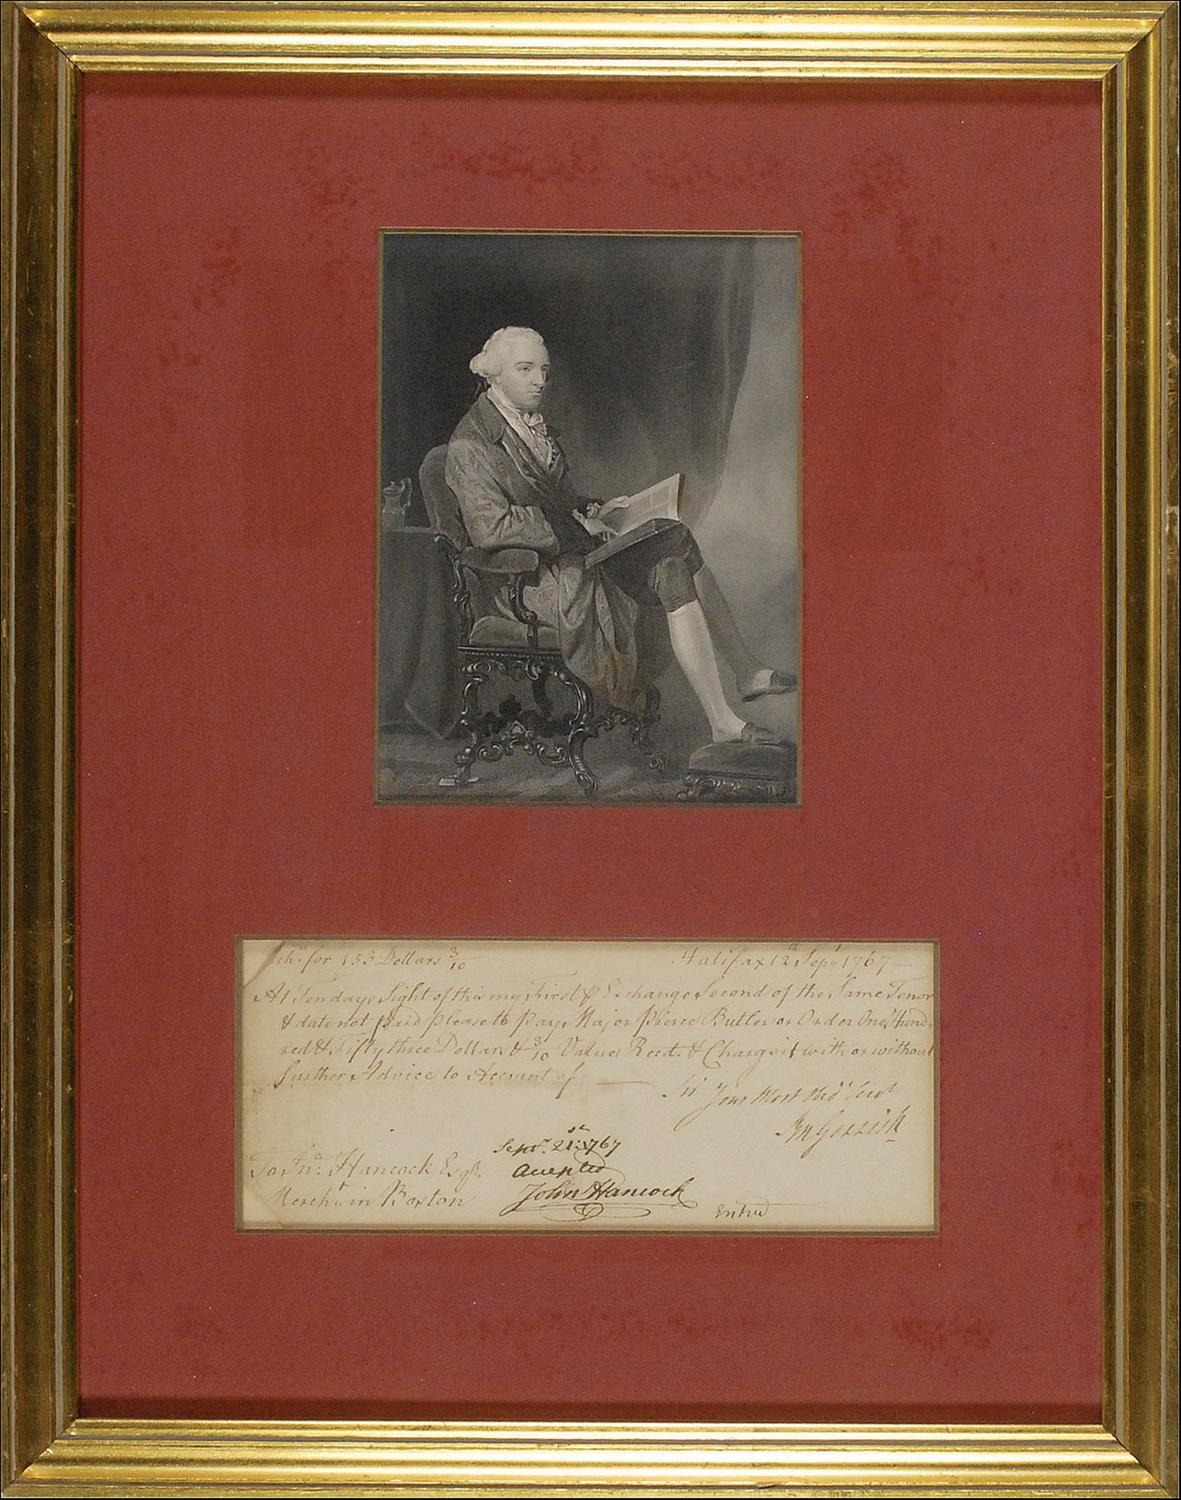 Exch. for 153 Dollars 3/10 Halifax 12th Sepr 1767
At Ten days Sight of this my First of Exchange Second of the Same Tenor
& date not paid please to pay Major Pierce Butler or Order One Hund-
red & Fifty three Dollars & 3/10 Value Recd. & Charge it with or without
further Advice to Account of
Sir Your Most Obdt Servt
Sepr. 21st: 1767
To Jno. Hancock Esqr. Accepted
Mercht. in Boston John Hancock
Entred